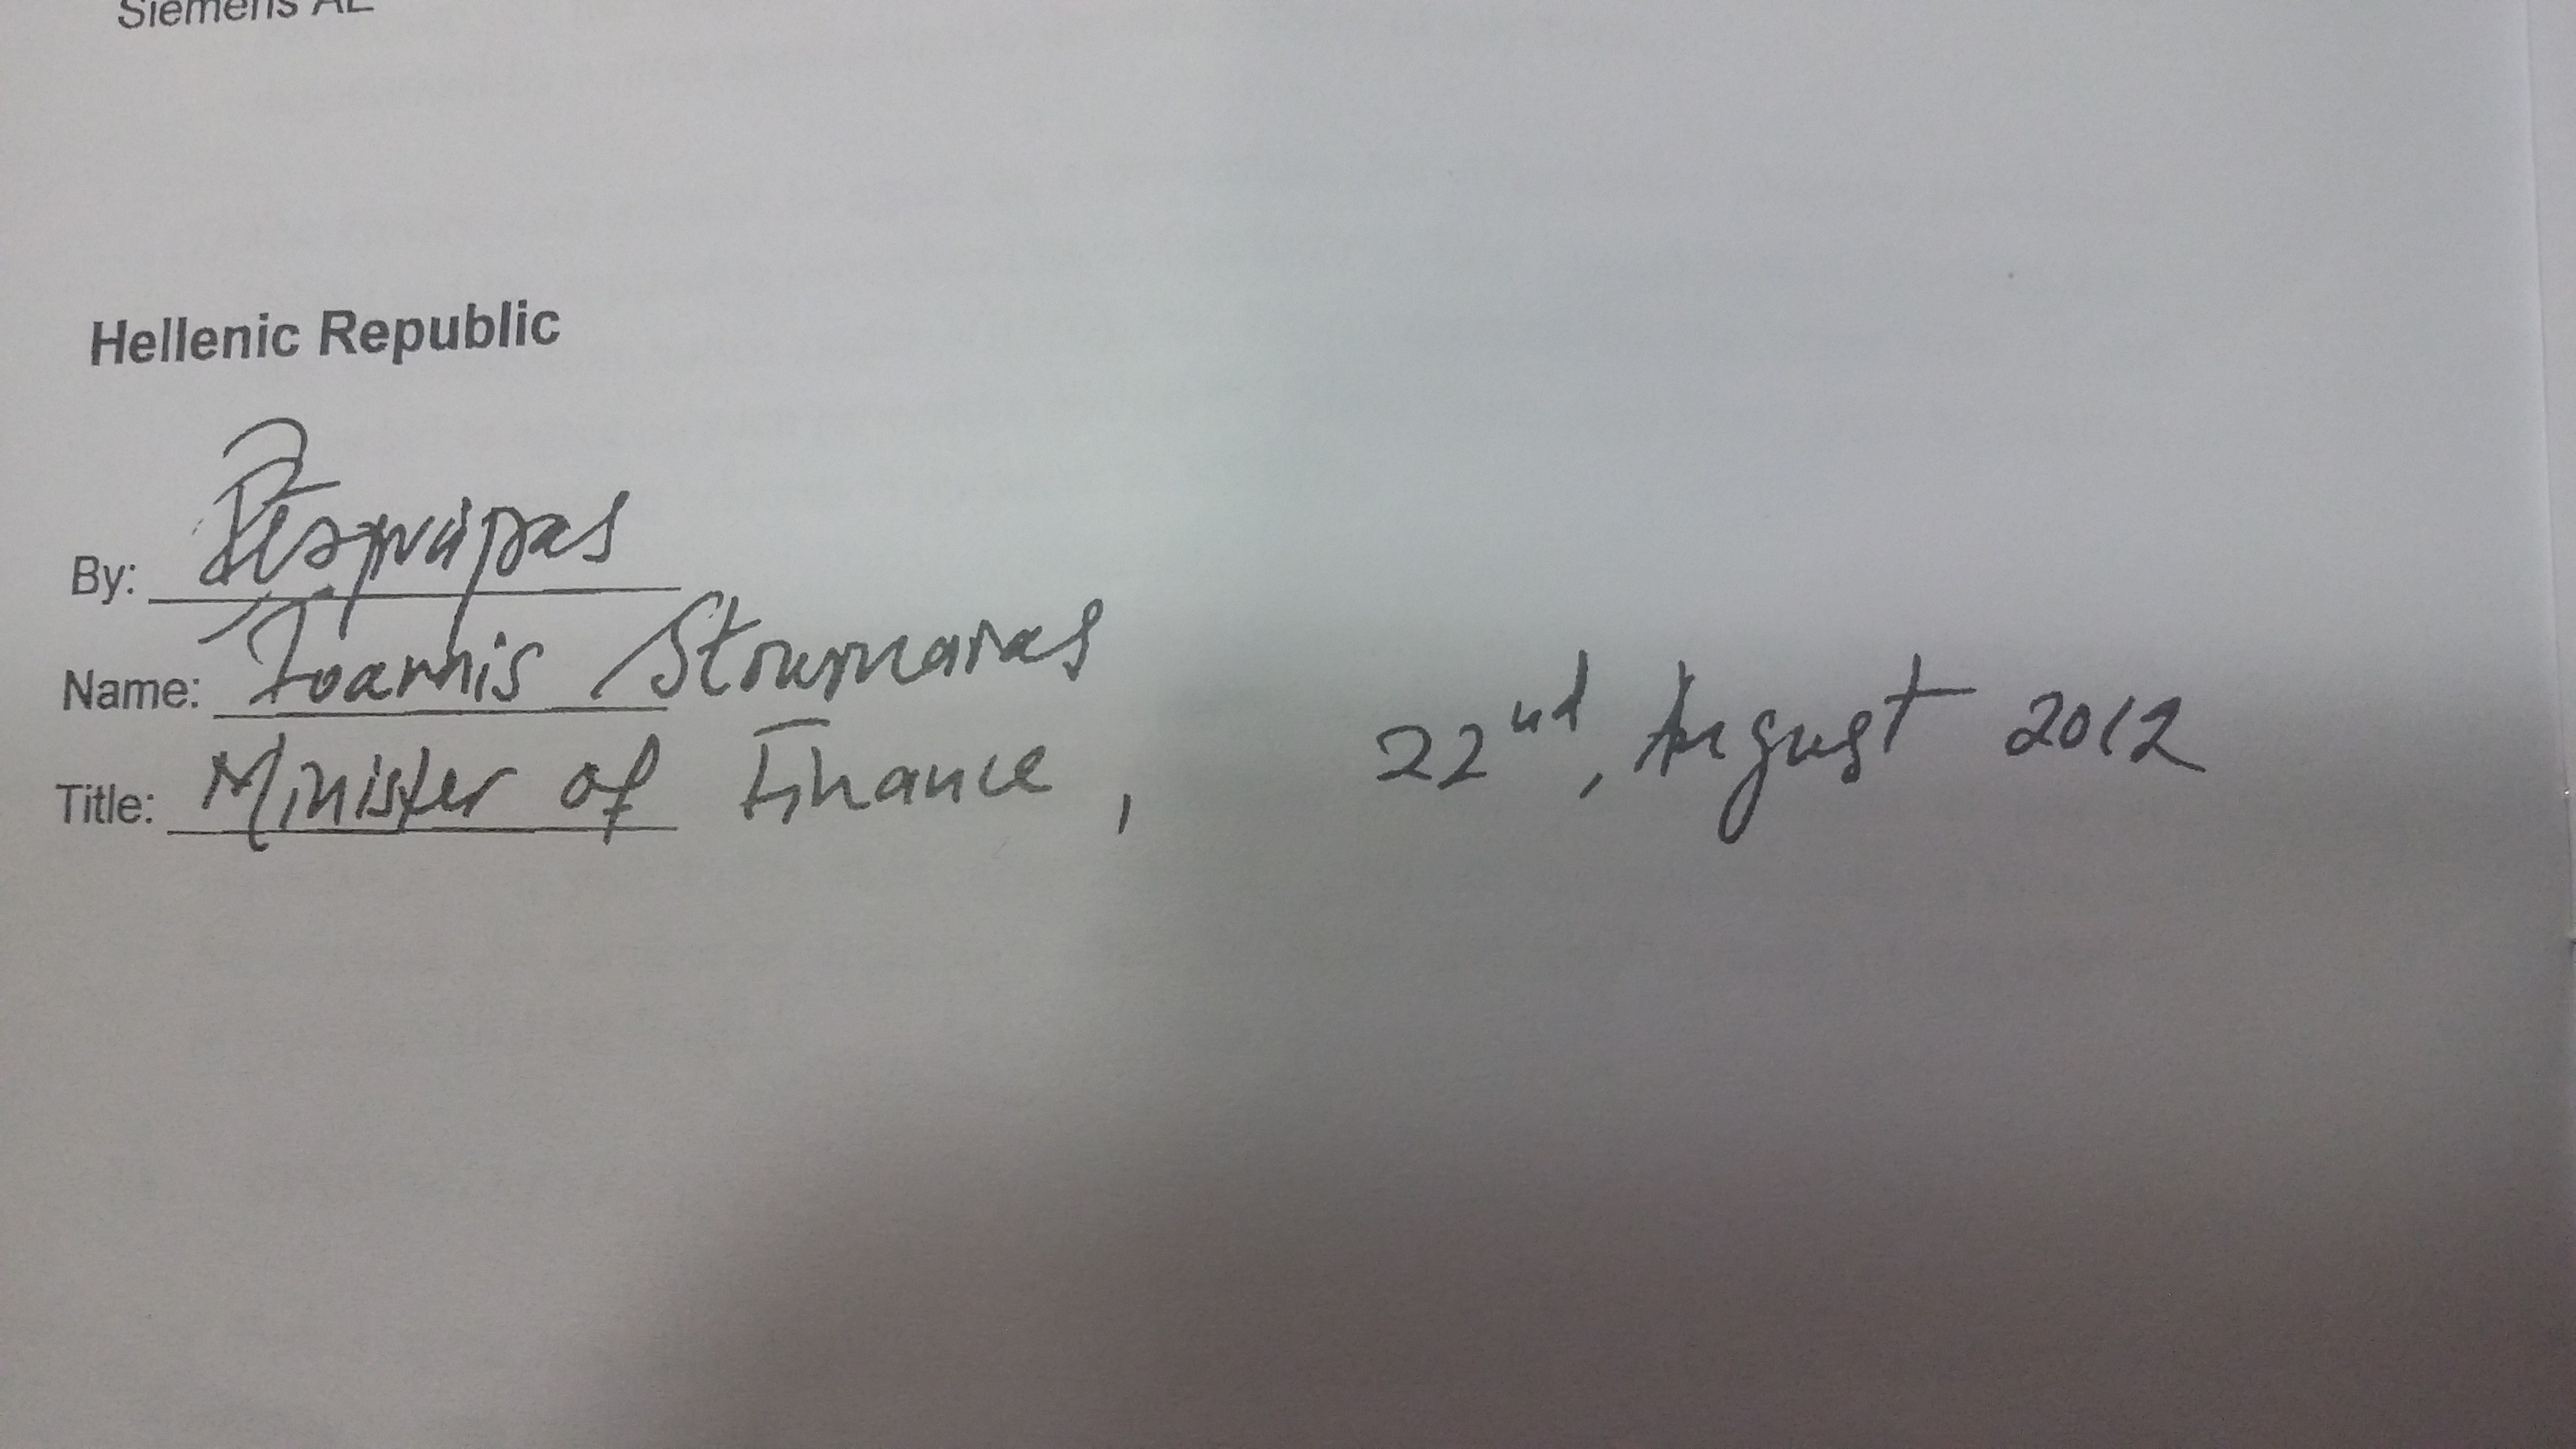 Siemens AE
Hellenic Republic
By:
Name: Ioannis Stournaras
Title: Minister of Finance, 22nd, August 2012